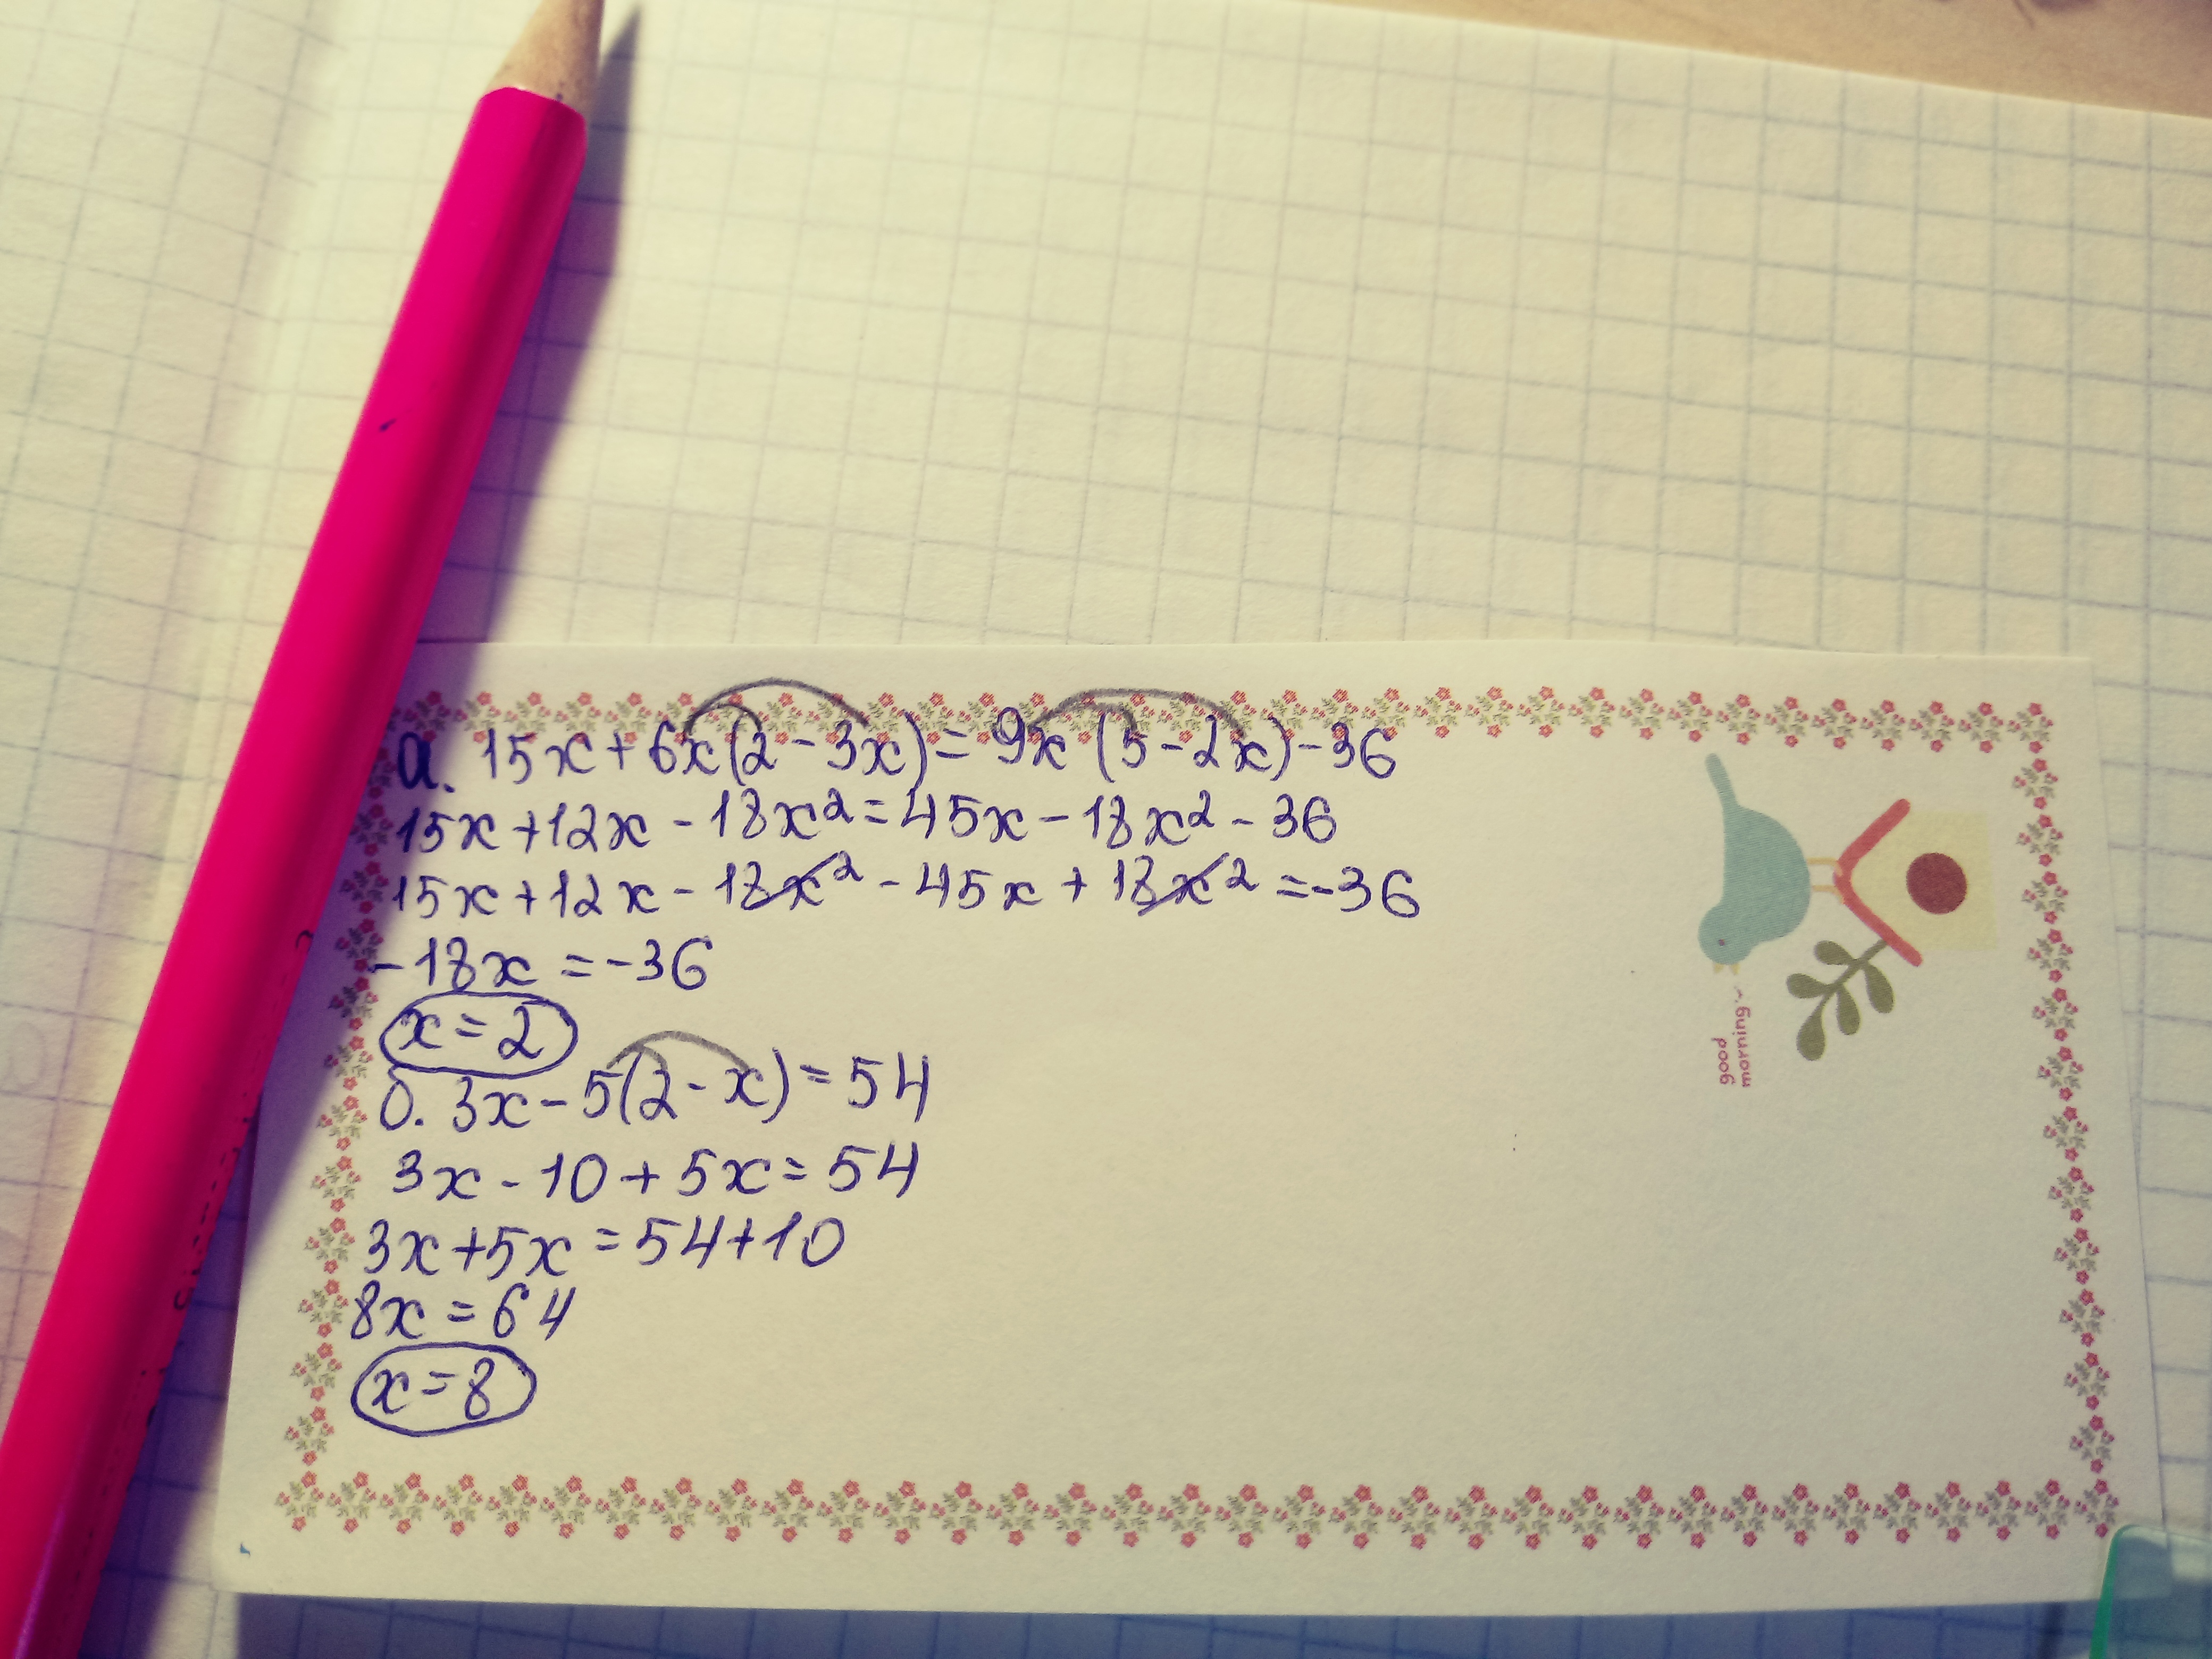 а. 15x+6x(2-3x)=9x(5-2x)-36
15x+12x-18x²=45x-18x²-36
15x+12x-18x²-45x+18x²=-36
-18x=-36
x=2
б. 3x-5(2-x)=54
3x-10+5x=54
3x+5x=54+10
8x=64
x=8
good
morning~